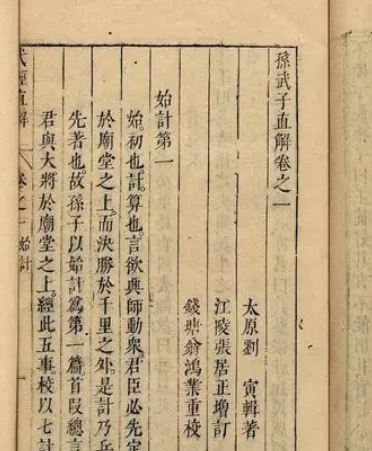 孫武子直解卷之一
太原劉　寅輯著
江陵張居正增訂
錢塘翁鴻業重校
始計第一
始初也計算也言欲興師動衆君臣必先定
於廟堂之上而決勝於千里之外是計乃兵
先著也故孫子以始計爲第一篇首段總言
君與大將於廟堂之上經此五事校以七計
武經直解　卷之一　始計